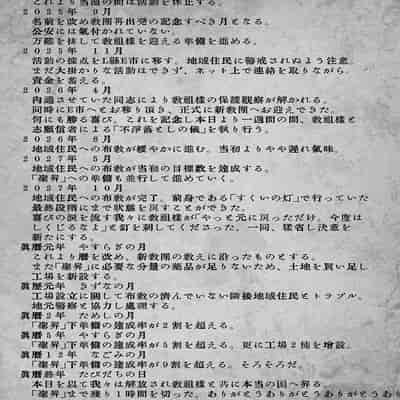 これより当面の間は活動を休止する。
2025年 9月
名前を改め教団再出発の記念すべき月となる。
公安には氣付かれていない。
万難を排して教祖様を迎える準備を進める。
2025年 11月
活動の拠点をL縣E市に移す。地域住民に警戒されぬよう注意。
まだ大掛かりな活動はできず、ネット上で連絡を取りながら
資金を蓄える。
2026年 4月
内通させていた同志により教祖様の保護観察が解かれる。
同時にE市へとお移り頂き、正式に新教団へお迎えできた。
何にも勝る喜び。これを記念し本日より一週間の間、教祖様と
志願信者による「不浄落としの儀」を執り行う。
2026年 8月
地域住民への布教が穏やかに進む。当初よりやや遅れ気味。
2027年 5月
地域住民への布教が当初の目標数を達成する。
「」への準備も並行して進めていく。
2027年 10月
地域住民への布教が完了。前身である「すくいの灯」で行っていた
最終段階にまで状態を戻すことができた。
喜びの涙を流す我々に教祖様が「やっと元に戻っただけ。今度は
しくじるなよ」と釘を刺してくださった。一同、猛省し決意を
新たにする。
眞暦元年 やすらぎの月
これより暦を改め、新教団の教えに沿ったものとする。
まだ「」に必要な分量の薬品が足りないため、土地を買い足し
工場を新設する。
眞暦元年 きずなの月
工場設立に関して布教の済んでいない隣接地域住民とトラブル。
地元警察と協力し処理する。
眞暦2年 ためしの月
「」下準備の達成率が2割を超える。
眞暦8年 やすらぎの月
「」下準備の達成率が5割を超える。更に工場2棟を増設。
眞暦12年 なごみの月
「」下準備の達成率が9割を超える。そろそろだ。
眞暦終年 たびだちの日
本日を以て我々は解放され教祖様と共に本当の国へ昇る。
「」まで残り1時間を切った。ありがとうありがとうありがとうあり